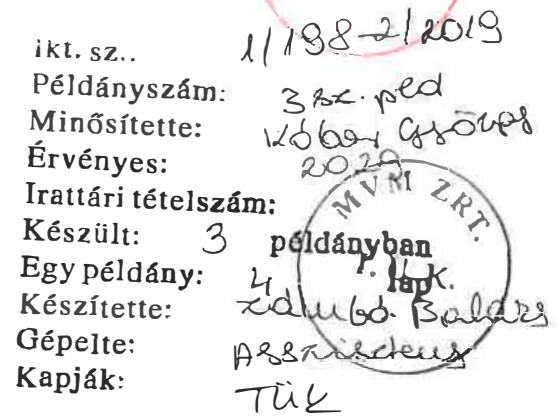 ikt. sz.. 1/198-2/2019
Példányszám: 3 sz. pld
Minősítette: Kóbor György
Érvényes: 2029
Irattári tételszám:
Készült: 3 példányban
Egy példány: 4 lap
Készítette: Balázs
Gépelte: Asszisztens
Kapják: TÜK
MVRI ZRT.